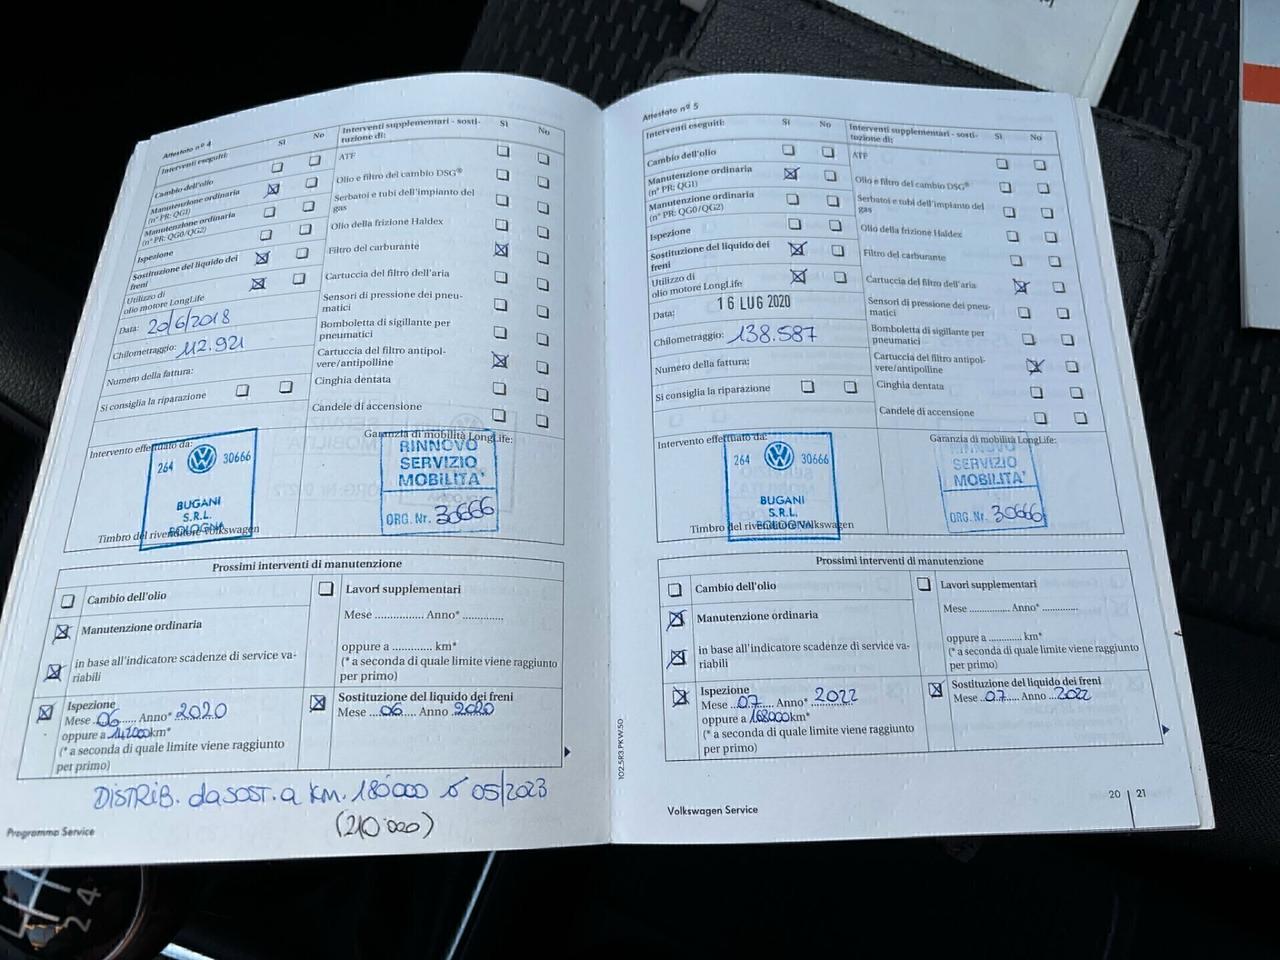 Attestato nº 4
Interventi eseguiti:
Sì
No
Cambio dell'olio
Manutenzione ordinaria
(nº PR: QG1)
Manutenzione ordinaria
(nº PR: QG0/QG2)
Ispezione
Sostituzione del liquido dei
freni
Utilizzo di
olio motore LongLife
Data: 20/6/2018
Chilometraggio: 112.921
Numero della fattura:
Si consiglia la riparazione
Interventi supplementari - sosti-
tuzione di:
Sì
No
ATF
Olio e filtro del cambio DSG®
Serbatoi e tubi dell'impianto del
gas
Olio della frizione Haldex
Filtro del carburante
Cartuccia del filtro dell'aria
Sensori di pressione dei pneu-
matici
Bomboletta di sigillante per
pneumatici
Cartuccia del filtro antipol-
vere/antipolline
Cinghia dentata
Candele di accensione
Intervento effettuato da:
264 30666
BUGANI
S.R.L.
BOLOGNA
Timbro del rivenditore Volkswagen
Garanzia di mobilità LongLife:
RINNOVO
SERVIZIO
MOBILITA'
ORG. Nr. 30666
Prossimi interventi di manutenzione
Cambio dell'olio
Manutenzione ordinaria
in base all'indicatore scadenze di service va-
riabili
Ispezione
Mese 06 Anno* 2020
oppure a 142000 km*
(* a seconda di quale limite viene raggiunto
per primo)
Lavori supplementari
Mese ................ Anno* .............
oppure a ............ km*
(* a seconda di quale limite viene raggiunto
per primo)
Sostituzione del liquido dei freni
Mese 06 Anno 2020
DISTRIB. da SOST. a KM. 180000 o 05/2023
(210'000)
Programma Service
Attestato nº 5
Interventi eseguiti:
Sì
No
Cambio dell'olio
Manutenzione ordinaria
(nº PR: QG1)
Manutenzione ordinaria
(nº PR: QG0/QG2)
Ispezione
Sostituzione del liquido dei
freni
Utilizzo di
olio motore LongLife
Data: 16 LUG 2020
Chilometraggio: 138.587
Numero della fattura:
Si consiglia la riparazione
Interventi supplementari - sosti-
tuzione di:
Sì
No
ATF
Olio e filtro del cambio DSG®
Serbatoi e tubi dell'impianto del
gas
Olio della frizione Haldex
Filtro del carburante
Cartuccia del filtro dell'aria
Sensori di pressione dei pneu-
matici
Bomboletta di sigillante per
pneumatici
Cartuccia del filtro antipol-
vere/antipolline
Cinghia dentata
Candele di accensione
Intervento effettuato da:
264 30666
BUGANI
S.R.L.
BOLOGNA
Timbro del rivenditore Volkswagen
Garanzia di mobilità LongLife:
RINNOVO
SERVIZIO
MOBILITA'
ORG. Nr. 30666
Prossimi interventi di manutenzione
Cambio dell'olio
Manutenzione ordinaria
in base all'indicatore scadenze di service va-
riabili
Ispezione
Mese 07 Anno* 2022
oppure a 168000 km*
(* a seconda di quale limite viene raggiunto
per primo)
Lavori supplementari
Mese ............. Anno* ............
oppure a .......... km*
(* a seconda di quale limite viene raggiunto
per primo)
Sostituzione del liquido dei freni
Mese 07 Anno 2022
102.5R3.PKW.50
Volkswagen Service
20 | 21
2 4